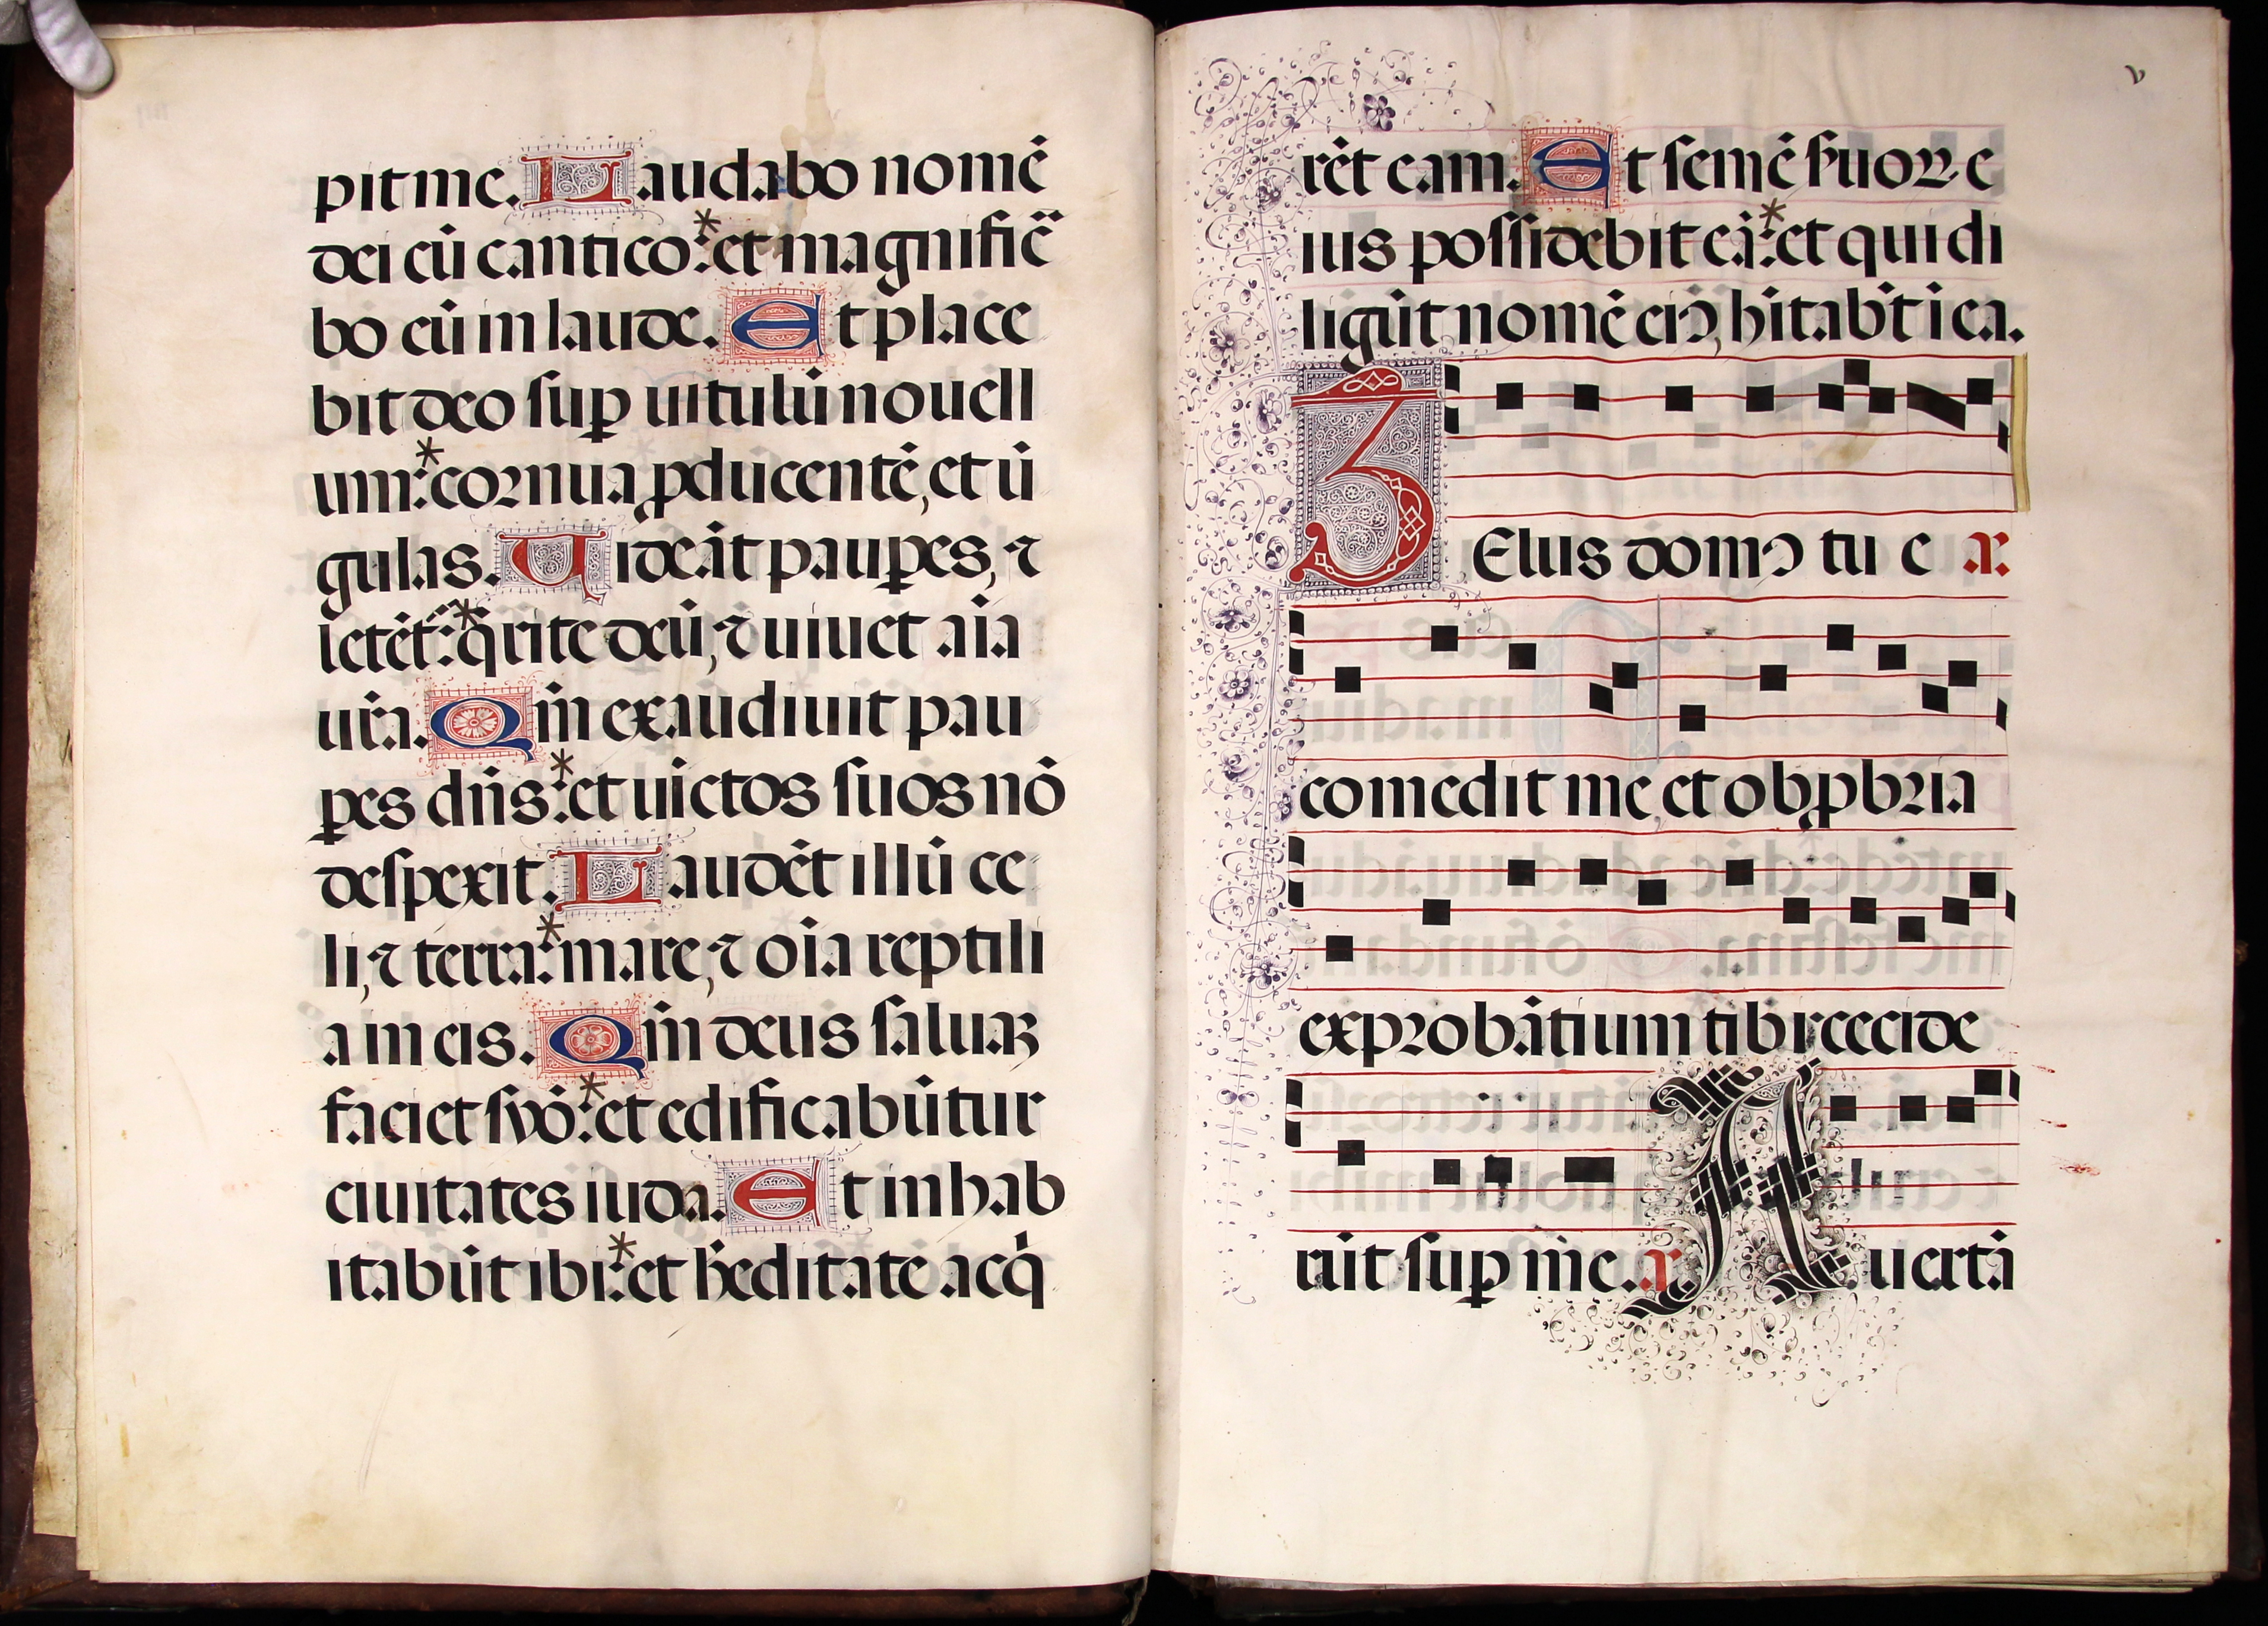 pit me. Laudabo nomē
dei cū cantico:* et magnific̄
bo cū in laude. Et place
bit deo sup̱ uitulū nouell
um:* cornua ꝓducentē, et ū
gulas. Uideāt paup̱es, ⁊
letēt̄:* q̄rite deū, ⁊ uiuet aīa
ur̄a. Qm̄ exaudiuit pau
p̱es dn̄s:* et uictos suos nō
despexit. Laudēt illū ce
li, ⁊ terra:* mare, ⁊ oīa reptili
a in eis. Qm̄ deus saluā
faciet syō:* et edificabūtur
ciuitates iuda. Et inhab
itabūt ibi:* et h̄editate acq̄
v
rēt eam. Et semē suoꝝ e
ius possidebit eā:* et qui di
ligūt nomē eiꝰ, hītabt̄ i ea.
ZElus domꝰ tu e a.
comedit me, et obꝓbria
exprobātium tibi cecide
rūt sup̱ me. a. Auertā